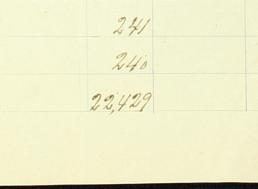 241
240
22,429